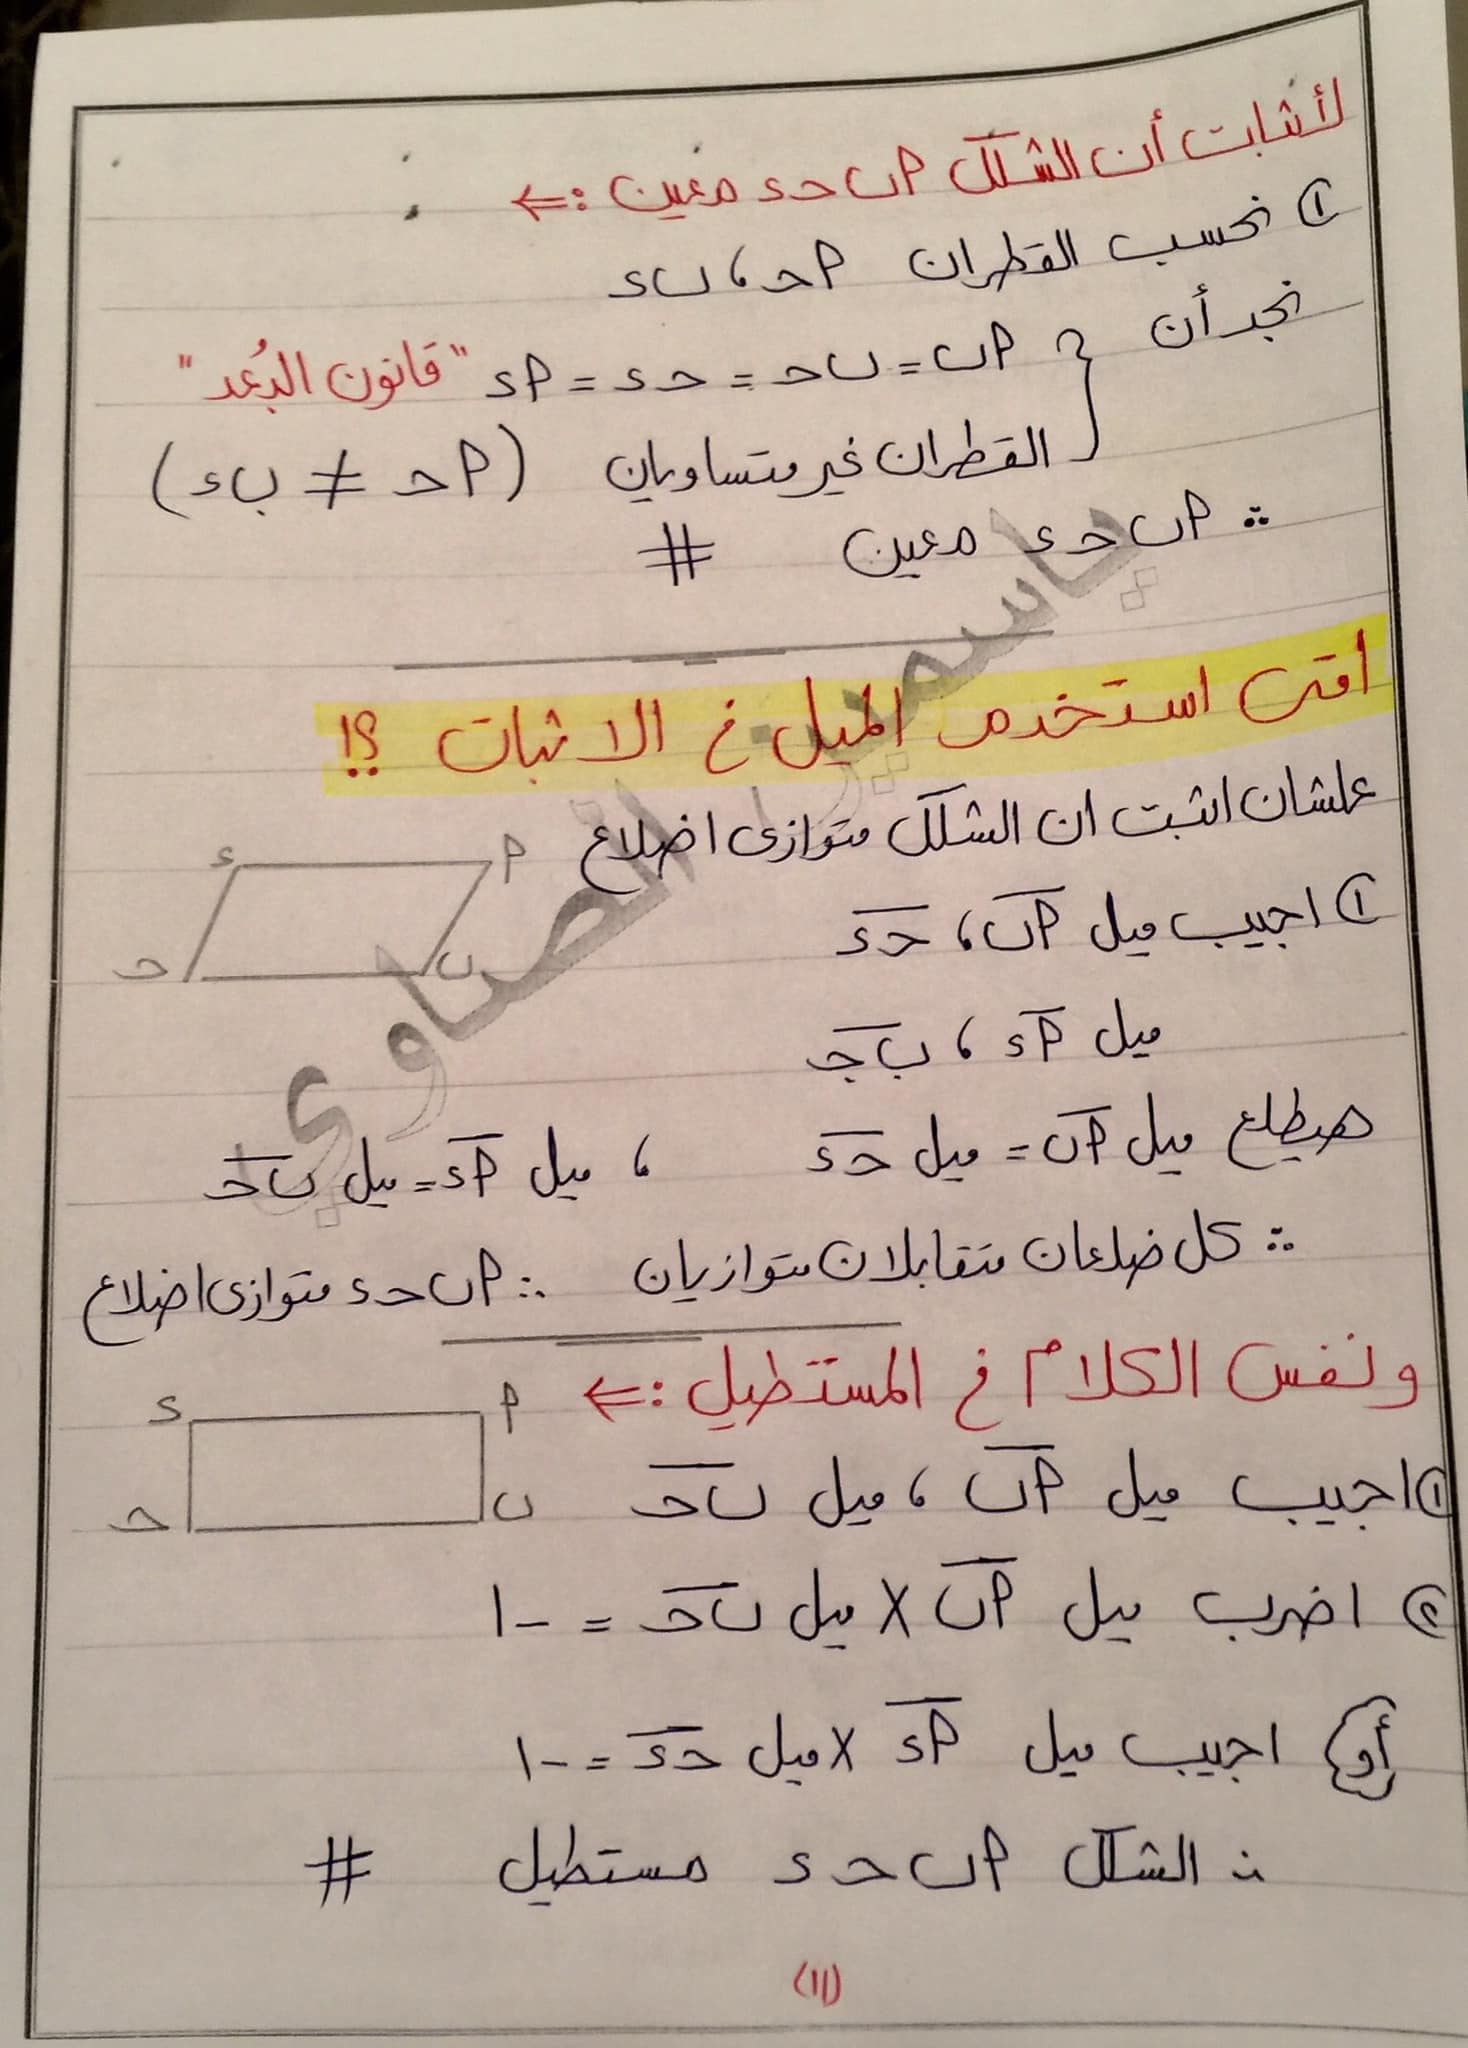 لأثبات أن الشكل أ ب حـ ء معين :⇐
① نحسب القطران أ حـ ، ب ء
نجد أن { أ ب = ب حـ = حـ ء = أ ء "قانون البُعد"
القطران غير متساويان (أ حـ ≠ ب ء)
∴ أ ب حـ ء معين #
امتى استخدم الميل فى الاثبات ؟!
علشان اثبت ان الشكل متوازى اضلاع
أ
ء
ب
حـ
① اجيب ميل أ ب ، حـ ء
ميل أ ء ، ب جـ
هيطلع ميل أ ب = ميل حـ ء ، ميل أ ء = ميل ب حـ
∴ كل ضلعان متقابلان متوازيان ∴ أ ب حـ ء متوازى اضلاع
ونفس الكلام فى المستطيل :⇐
أ
ء
ب
حـ
① اجيب ميل أ ب ، ميل ب حـ
② اضرب ميل أ ب × ميل ب حـ = -١
أو اجيب ميل أ ء × ميل حـ ء = -١
∴ الشكل أ ب حـ ء مستطيل #
(١١)
ياسمين الصاوي